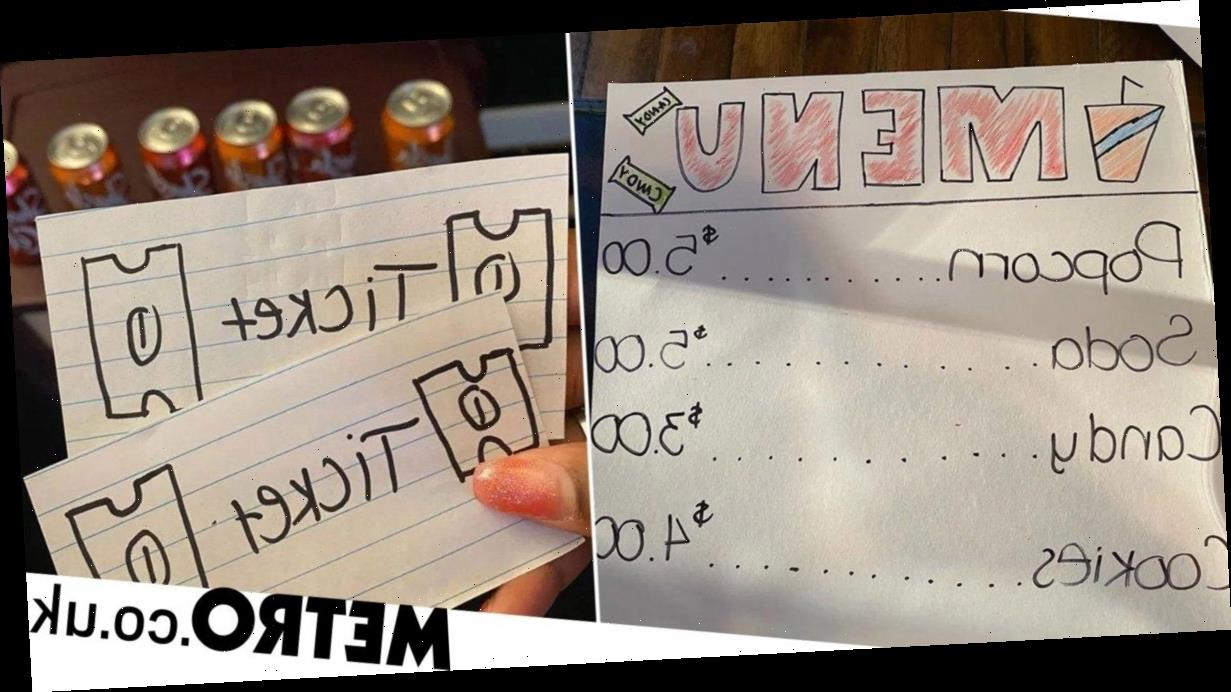 MENU
CANDY
CANDY
Popcorn ........... $5.00
Soda ............. $5.00
Candy ............. $3.00
Cookies ............. $4.00
Ticket
Ticket
METRO.co.uk